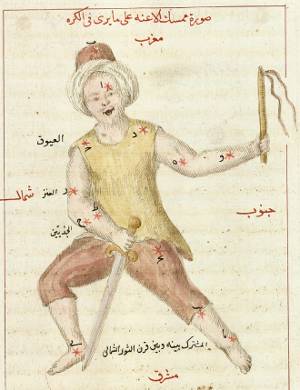 صورة ممسك الاعنه على ما يرى فى الكره
مغرب
ب
ا
ح
د
العيوق
ه
و
شمال
العنز
ز
جنوب
ط
الجديين
ى
المشترك بينه وبين قرن الثور الشمالى
مشرق